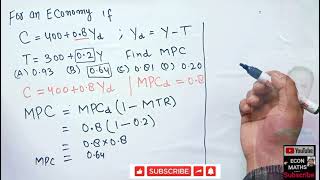 For an Economy if
C = 400+0.8Yd ; Yd = Y-T
T = 300+0.2Y Find MPC
(A) 0.93 (B) 0.64 (C) 0.81 (D) 0.20
C = 400+0.8Yd | MPCd = 0.8
MPC = MPCd (1- MTR)
= 0.8 (1-0.2)
= 0.8×0.8
MPC = 0.64
YouTube
ECON
MATHS
SUBSCRIBE